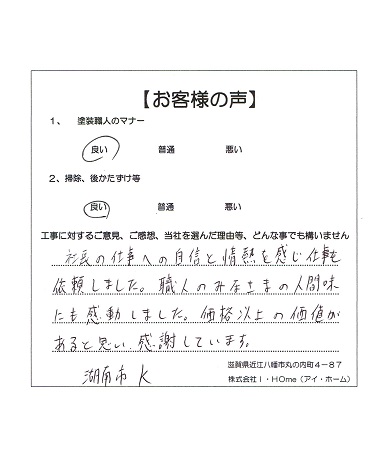 【お客様の声】
1、 塗装職人のマナー
良い 普通 悪い
2、掃除、後かたずけ等
良い 普通 悪い
工事に対するご意見、ご感想、当社を選んだ理由等、どんな事でも構いません
社長の仕事への自信と情熱を感じ仕事を
依頼しました。職人のみなさまの人間味
にも感動しました。価格以上の価値が
あると思い、感謝しています。
滋賀県近江八幡市丸の内町4-87
湖南市 K
株式会社I・HOme(アイ・ホーム)